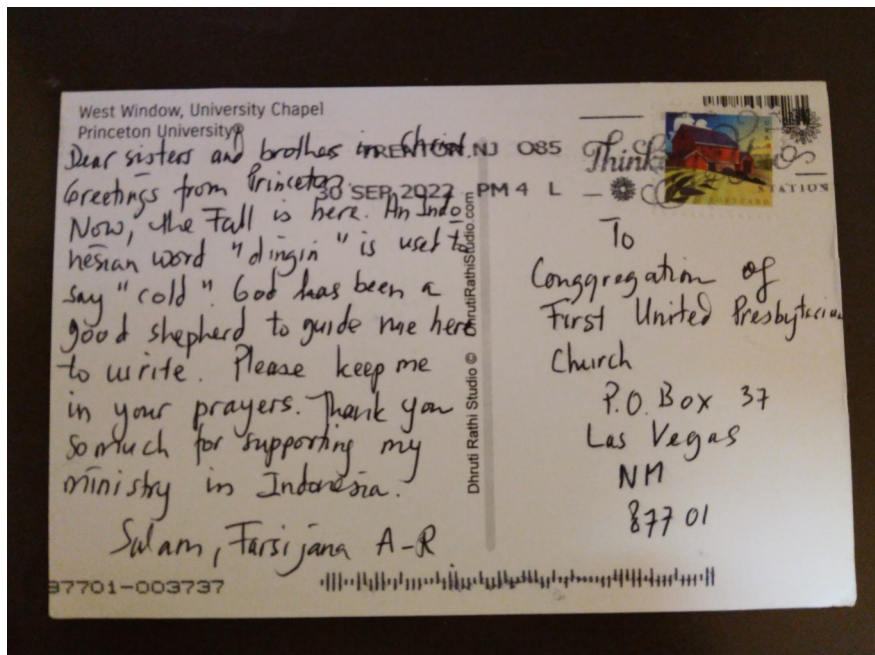 West Window, University Chapel
Princeton University
Dear sisters and brothers in Christ.
Greetings from Princeton.
Now, the Fall is here. An Indo
nesian word "dingin" is used to
say "cold". God has been a
good shepherd to guide me here
to write. Please keep me
in your prayers. Thank you
so much for supporting my
ministry in Indonesia.
Salam, Farsijana A-R
97701-003737
Dhruti Rathi Studio © DhrutiRathiStudio.com
TRENTON NJ 085
30 SEP 2022 PM 4 L
Think
STATION
To
Conggregation of
First United Presbyterian
Church
P.O. Box 37
Las Vegas
NM
87701